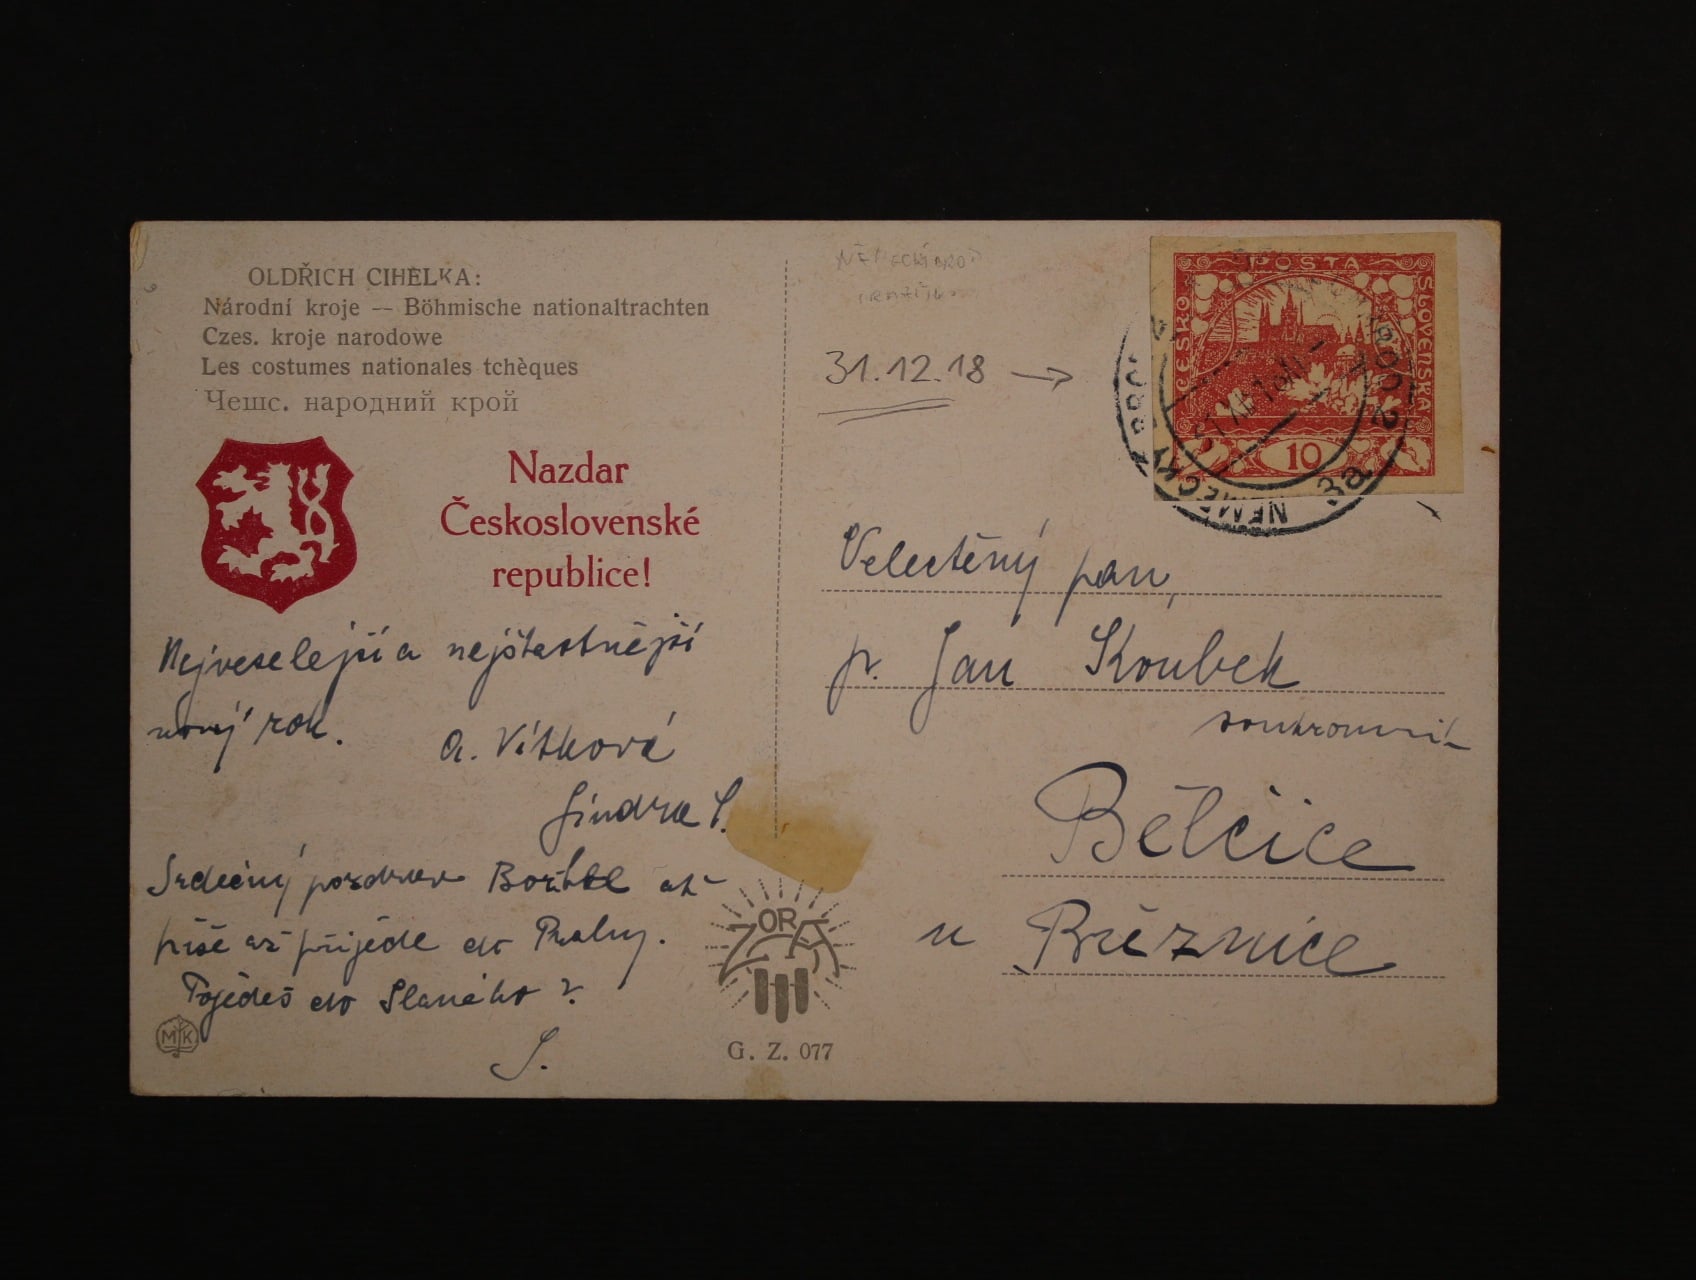 OLDŘICH CIHELKA:
Národní kroje — Böhmische nationaltrachten
Czes. kroje narodowe
Les costumes nationales tchèques
Чешс. народний крой
Nazdar
Československé
republice!
Nejveselejší a nejšťastnější
nový rok.
A. Vítková
Jindra S.
Srdečný pozdrav až
píše až přijede do Prahy.
Pojedeš do Slaného?
S.
MK
ZORA
G. Z. 077
NĚMECKÝ BROD
31.12.18 →
POSTA
ČESKO
SLOVENSKÁ
10
NĚMECKÝ BROD 2
3a
Velectěný pan,
p. Jan Koubek
soukromník
Bělčice
u Březnice